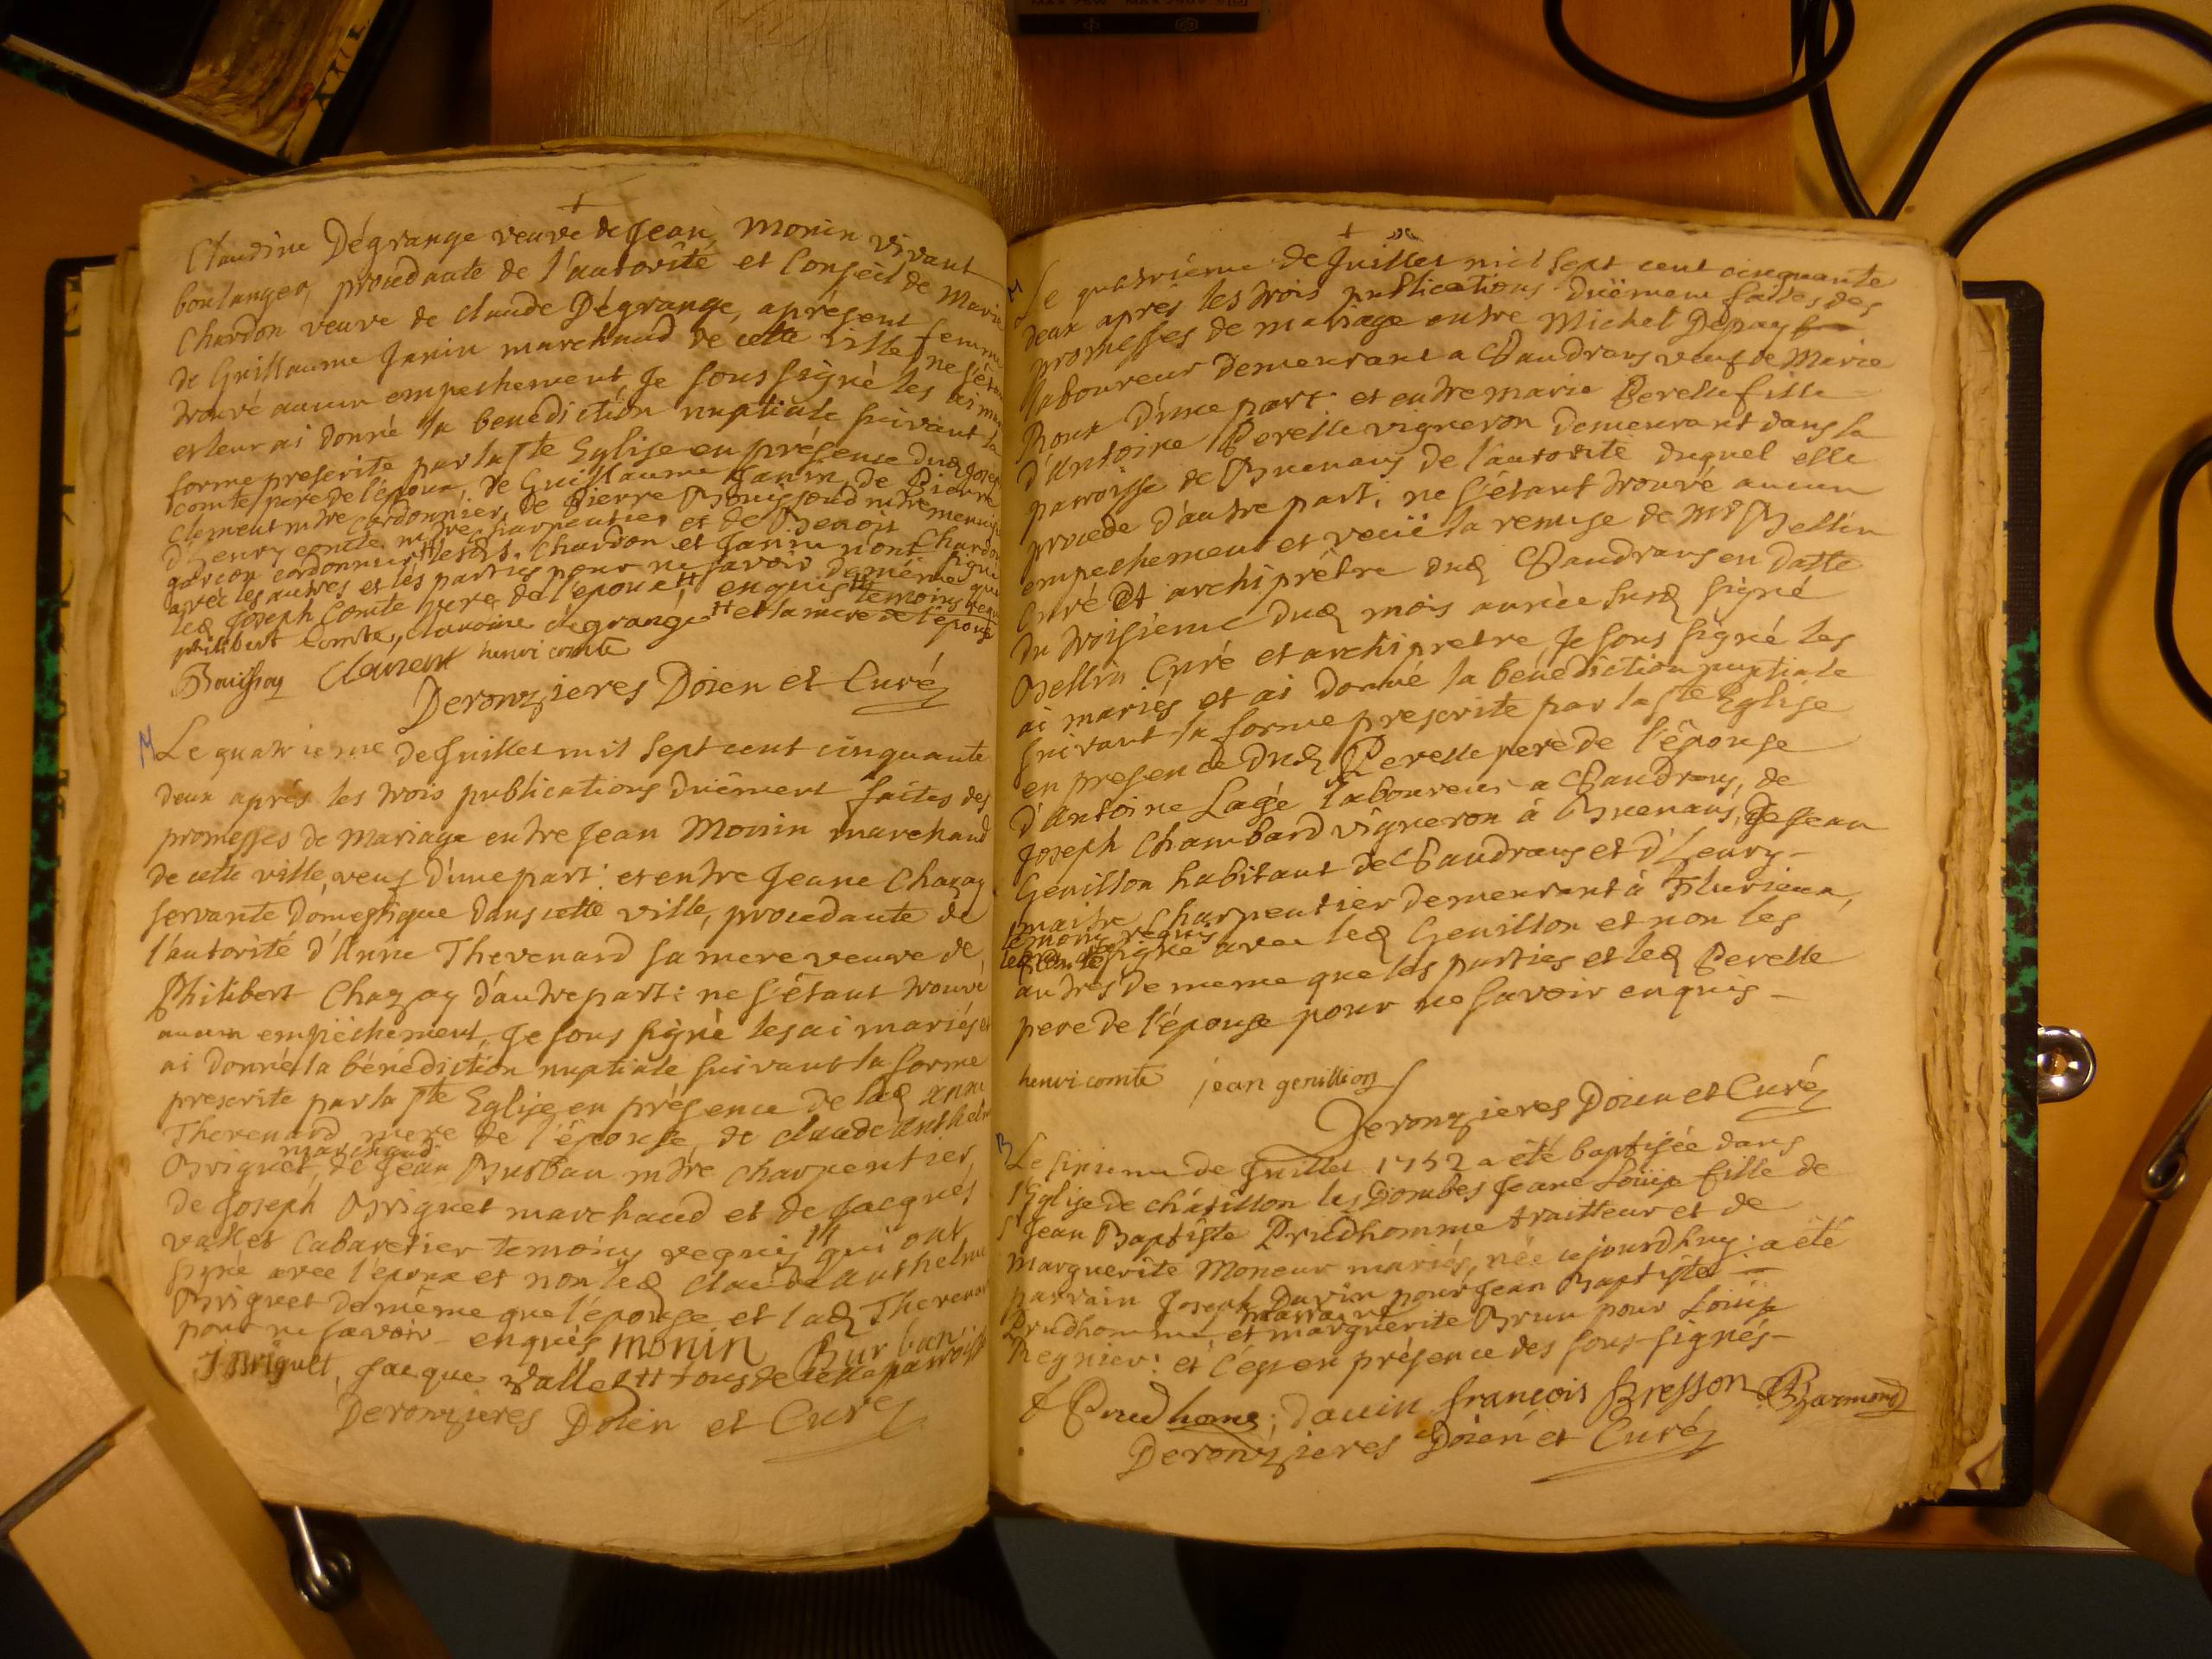 Claudine Dégrange veuve de Jean Monin vivant
boulanger, procedante de l'autorité et Conseil de Marie
Chardon veuve de claude Dégrange, apresent femme
de Guillaume Janin marchand de cette ville, ne s'étant
trouvé aucun empechement, Je soussigné les ai mariés
et leur ai donné la benediction nuptiale suivant la
forme prescrite par la ste Eglise en présence dud Joseph
comte pere de l'époux, de Guillaume Janin, de Pierre
Clement mtre Cordonnier, de Pierre mtre menuisier
d'henry comte mtre charpentier et de Benoit Chardon
garcon cordonnier lesd. Chardon et Janin n'ont signé
avec les autres et les parties pour ne savoir de même que
led Joseph Comte pere de l'époux enquis temoins requis
philibert Comte, claudine dégrange et la mere de l'épouse
Clement henri comte
Deronzieres Doien et Curé
M Le quatrieme de Juillet mil sept cent cinquante
deux aprés les trois publications duëment faites des
promesses de Mariage entre Jean Monin marchand
de cette ville, veuf d'une part: et entre Jeane Chazay
servante Domestique dans cette ville, procedante de
l'autorité d'Anne Thevenard sa mere veuve de
Philibert Chazay d'autre part: ne s'étant trouvé
aucun empêchement, Je sous signé les ai mariés et
ai donné la bénédiction nuptiale suivant la forme
prescrite par la ste Eglise en présence de lad anne
Thevenard mere de l'épouse, de claude anthelme
marchand
Briguet, de Jean Burban mtre charpentier,
de Joseph Briguet marchand et de Jacques
vallet Cabaretier temoins requis qui ont
signé avec l'époux et non led Claude anthelme
Briguet de même que l'épouse et lad Thevenard
pour ne savoir enquis monin Burban
J Briguet, Jacque vallet tous de cette paroisse
Deronzieres Doien et Curé
M Le quatriéme de Juillet mil sept cent cinquante
deux aprés les trois publications duëment faites des
promesses de mariage entre Michel Depay
laboureur demeurant a Sandrans veuf de Marie
Roux d'une part et entre marie Perelle fille
d'Antoine Perelle vigneron demeurant dans la
paroisse de Buenans de l'autorité duquel elle
procede d'autre part, ne s'étant trouvé aucun
empechement et veüe la remise de Mr Bellin
Curé et archiprêtre dud Sandrans en datte
du troisieme dud mois année susd signé
Bellin Curé et archiprètre, Je sous signé les
ai mariés et ai donné la benediction nuptiale
suivant la forme prescrite par la ste Eglise
en presence dud Perelle pere de l'épouse
d'Antoine Lagé laboureur a Sandrans, de
Joseph Chambard vigneron à Buenans, de Jean
Genillon habitant de Sandrans et d'henry
maitre Charpentier demeurant à Fleurieux,
temoins requis
led signé avec led Genillon et non les
autres de meme que les parties et led Perelle
pere de l'épouse pour ne savoir enquis
henri comte jean genillion
Deronzieres Doien et Curé
B Le sixieme de Juillet 1752 a été baptisée dans
l'Eglise de châtillon les Dombes Jeane Loüise fille de
Sr Jean Baptiste Prudhomme traitteur et de
Marguerite Moneur mariés, née cejourdhuy: a été
parrain Joseph Davin pour Jean Baptiste
marraine
Prudhomme, et marguerite Brun pour Loüise
Regnier: et l'es en présence des sous-signés
Prudhome, davin françois Bresson
Deronzieres Doien et Curé